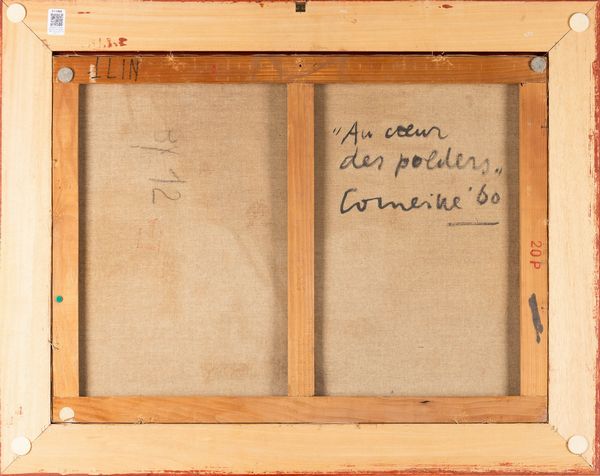 LLIN
"Au cœur
des polders„
Corneille '60
20P